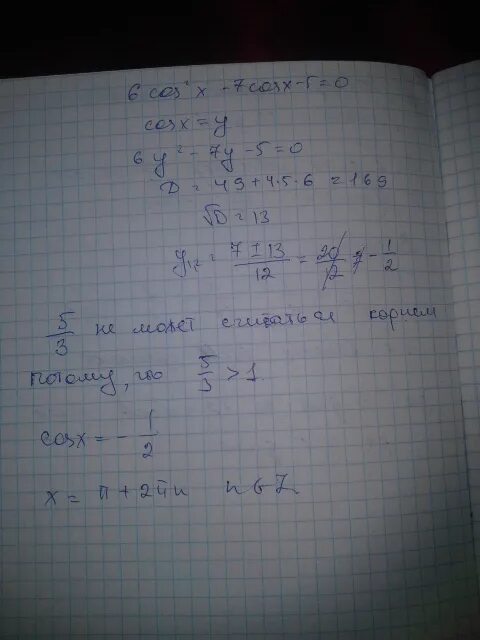 6 cos² x - 7 cos x - 5 = 0
cos x = y
6y² - 7y - 5 = 0
D = 49 + 4·5·6 = 169
√D = 13
y₁,₂ = (7 ± 13)/12 = 20/12 ; -1/2
5/3 не может считаться корнем
потому, что 5/3 > 1
cos x = - 1/2
x = π + 2πn n ∈ Z